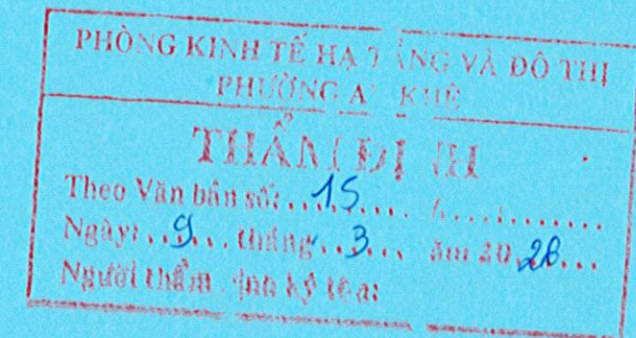 PHÒNG KINH TẾ HẠ TẦNG VÀ ĐÔ THỊ
PHƯỜNG AN KHÊ
THẨM ĐỊNH
Theo Văn bản số:...15..../............
Ngày:...9... tháng...3... năm 20.26...
Người thẩm định ký tên: